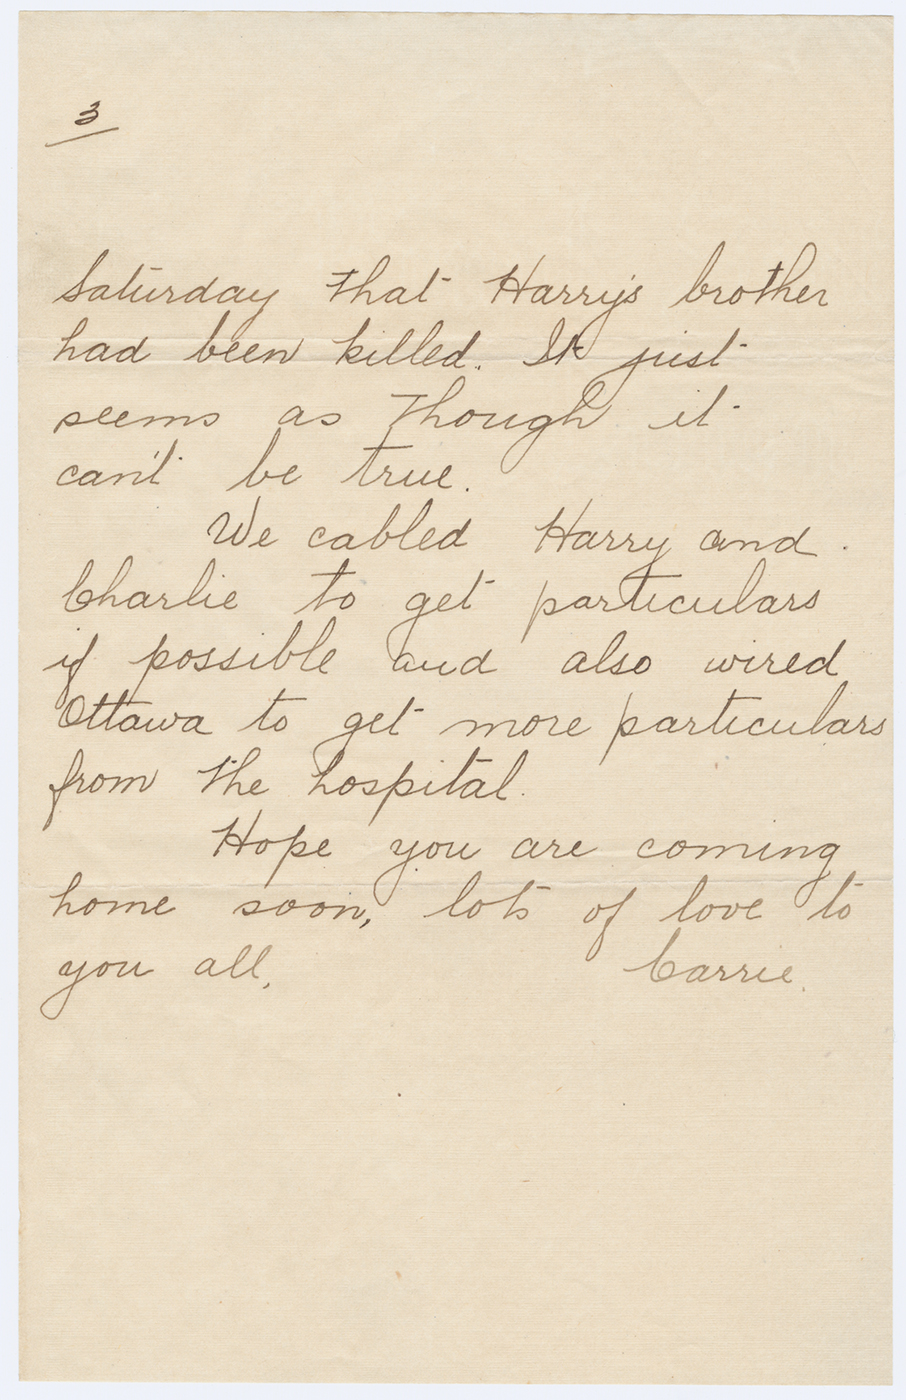 3
Saturday that Harry's brother
had been killed. It just
seems as though it
can't be true.
We cabled Harry and
Charlie to get particulars
if possible and also wired
Ottawa to get more particulars
from the hospital.
Hope you are coming
home soon, lots of love to
you all, Carrie.